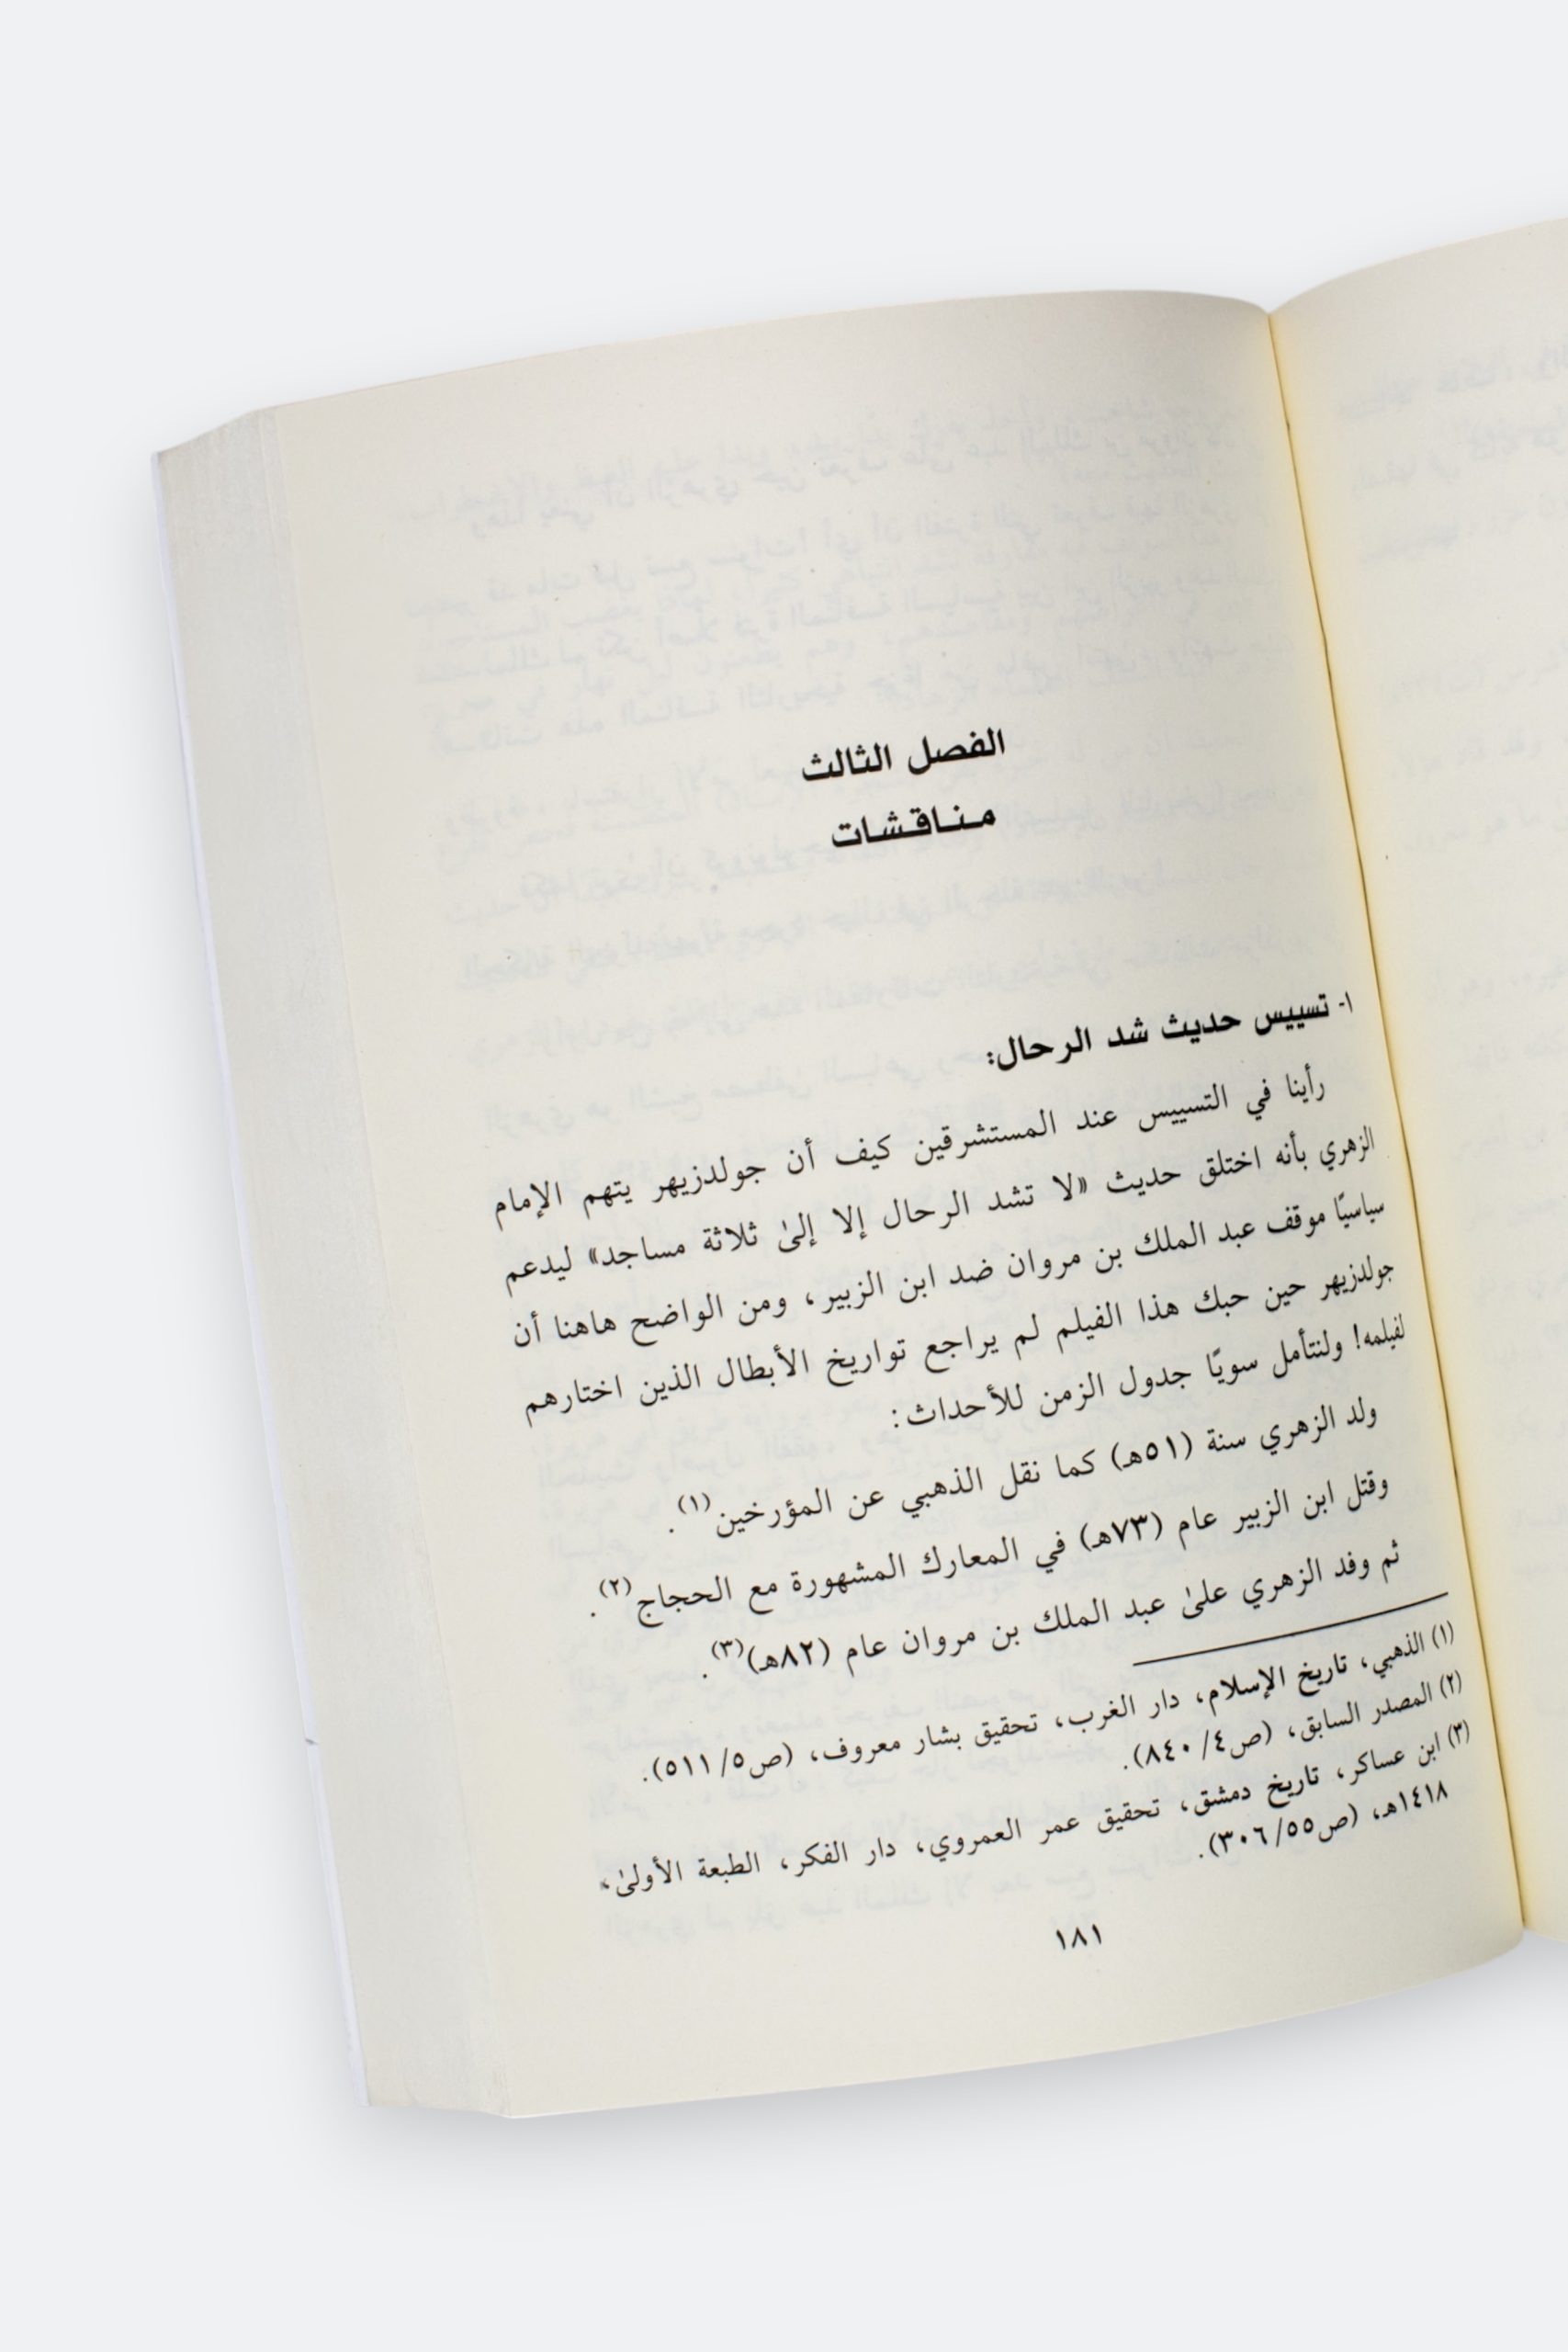 الفصل الثالث
مناقشات
١- تسييس حديث شد الرحال:
رأينا في التسييس عند المستشرقين كيف أن جولدزيهر يتهم الإمام
الزهري بأنه اختلق حديث «لا تشد الرحال إلا إلىٰ ثلاثة مساجد» ليدعم
سياسيًا موقف عبد الملك بن مروان ضد ابن الزبير، ومن الواضح هاهنا أن
جولدزيهر حين حبك هذا الفيلم لم يراجع تواريخ الأبطال الذين اختارهم
لفيلمه! ولنتأمل سويًا جدول الزمن للأحداث:
ولد الزهري سنة (٥١هـ) كما نقل الذهبي عن المؤرخين(١).
وقتل ابن الزبير عام (٧٣هـ) في المعارك المشهورة مع الحجاج(٢).
ثم وفد الزهري علىٰ عبد الملك بن مروان عام (٨٢هـ)(٣).
(١) الذهبي، تاريخ الإسلام، دار الغرب، تحقيق بشار معروف، (ص٥/ ٥١١).
(٢) المصدر السابق، (ص٤/ ٨٤٠).
(٣) ابن عساكر، تاريخ دمشق، تحقيق عمر العمروي، دار الفكر، الطبعة الأولىٰ،
١٤١٨هـ، (ص٥٥/ ٣٠٦).
١٨١